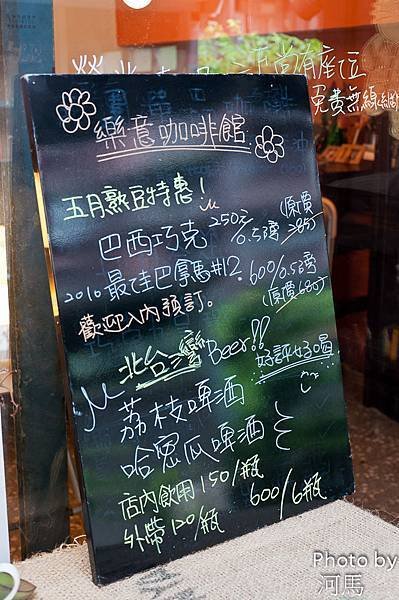 尚有座位
免費無線網
樂意咖啡館
五月熟豆特惠!
巴西巧克 250元/0.5磅 (原價285)
2010最佳巴拿馬#12. 600/0.5磅
(原價680)
歡迎入內預訂。
北台灣Beer!!
好評好喝
荔枝啤酒
哈密瓜啤酒
店內飲用 150/瓶
外帶 120/瓶
600/6瓶
Photo by
河馬